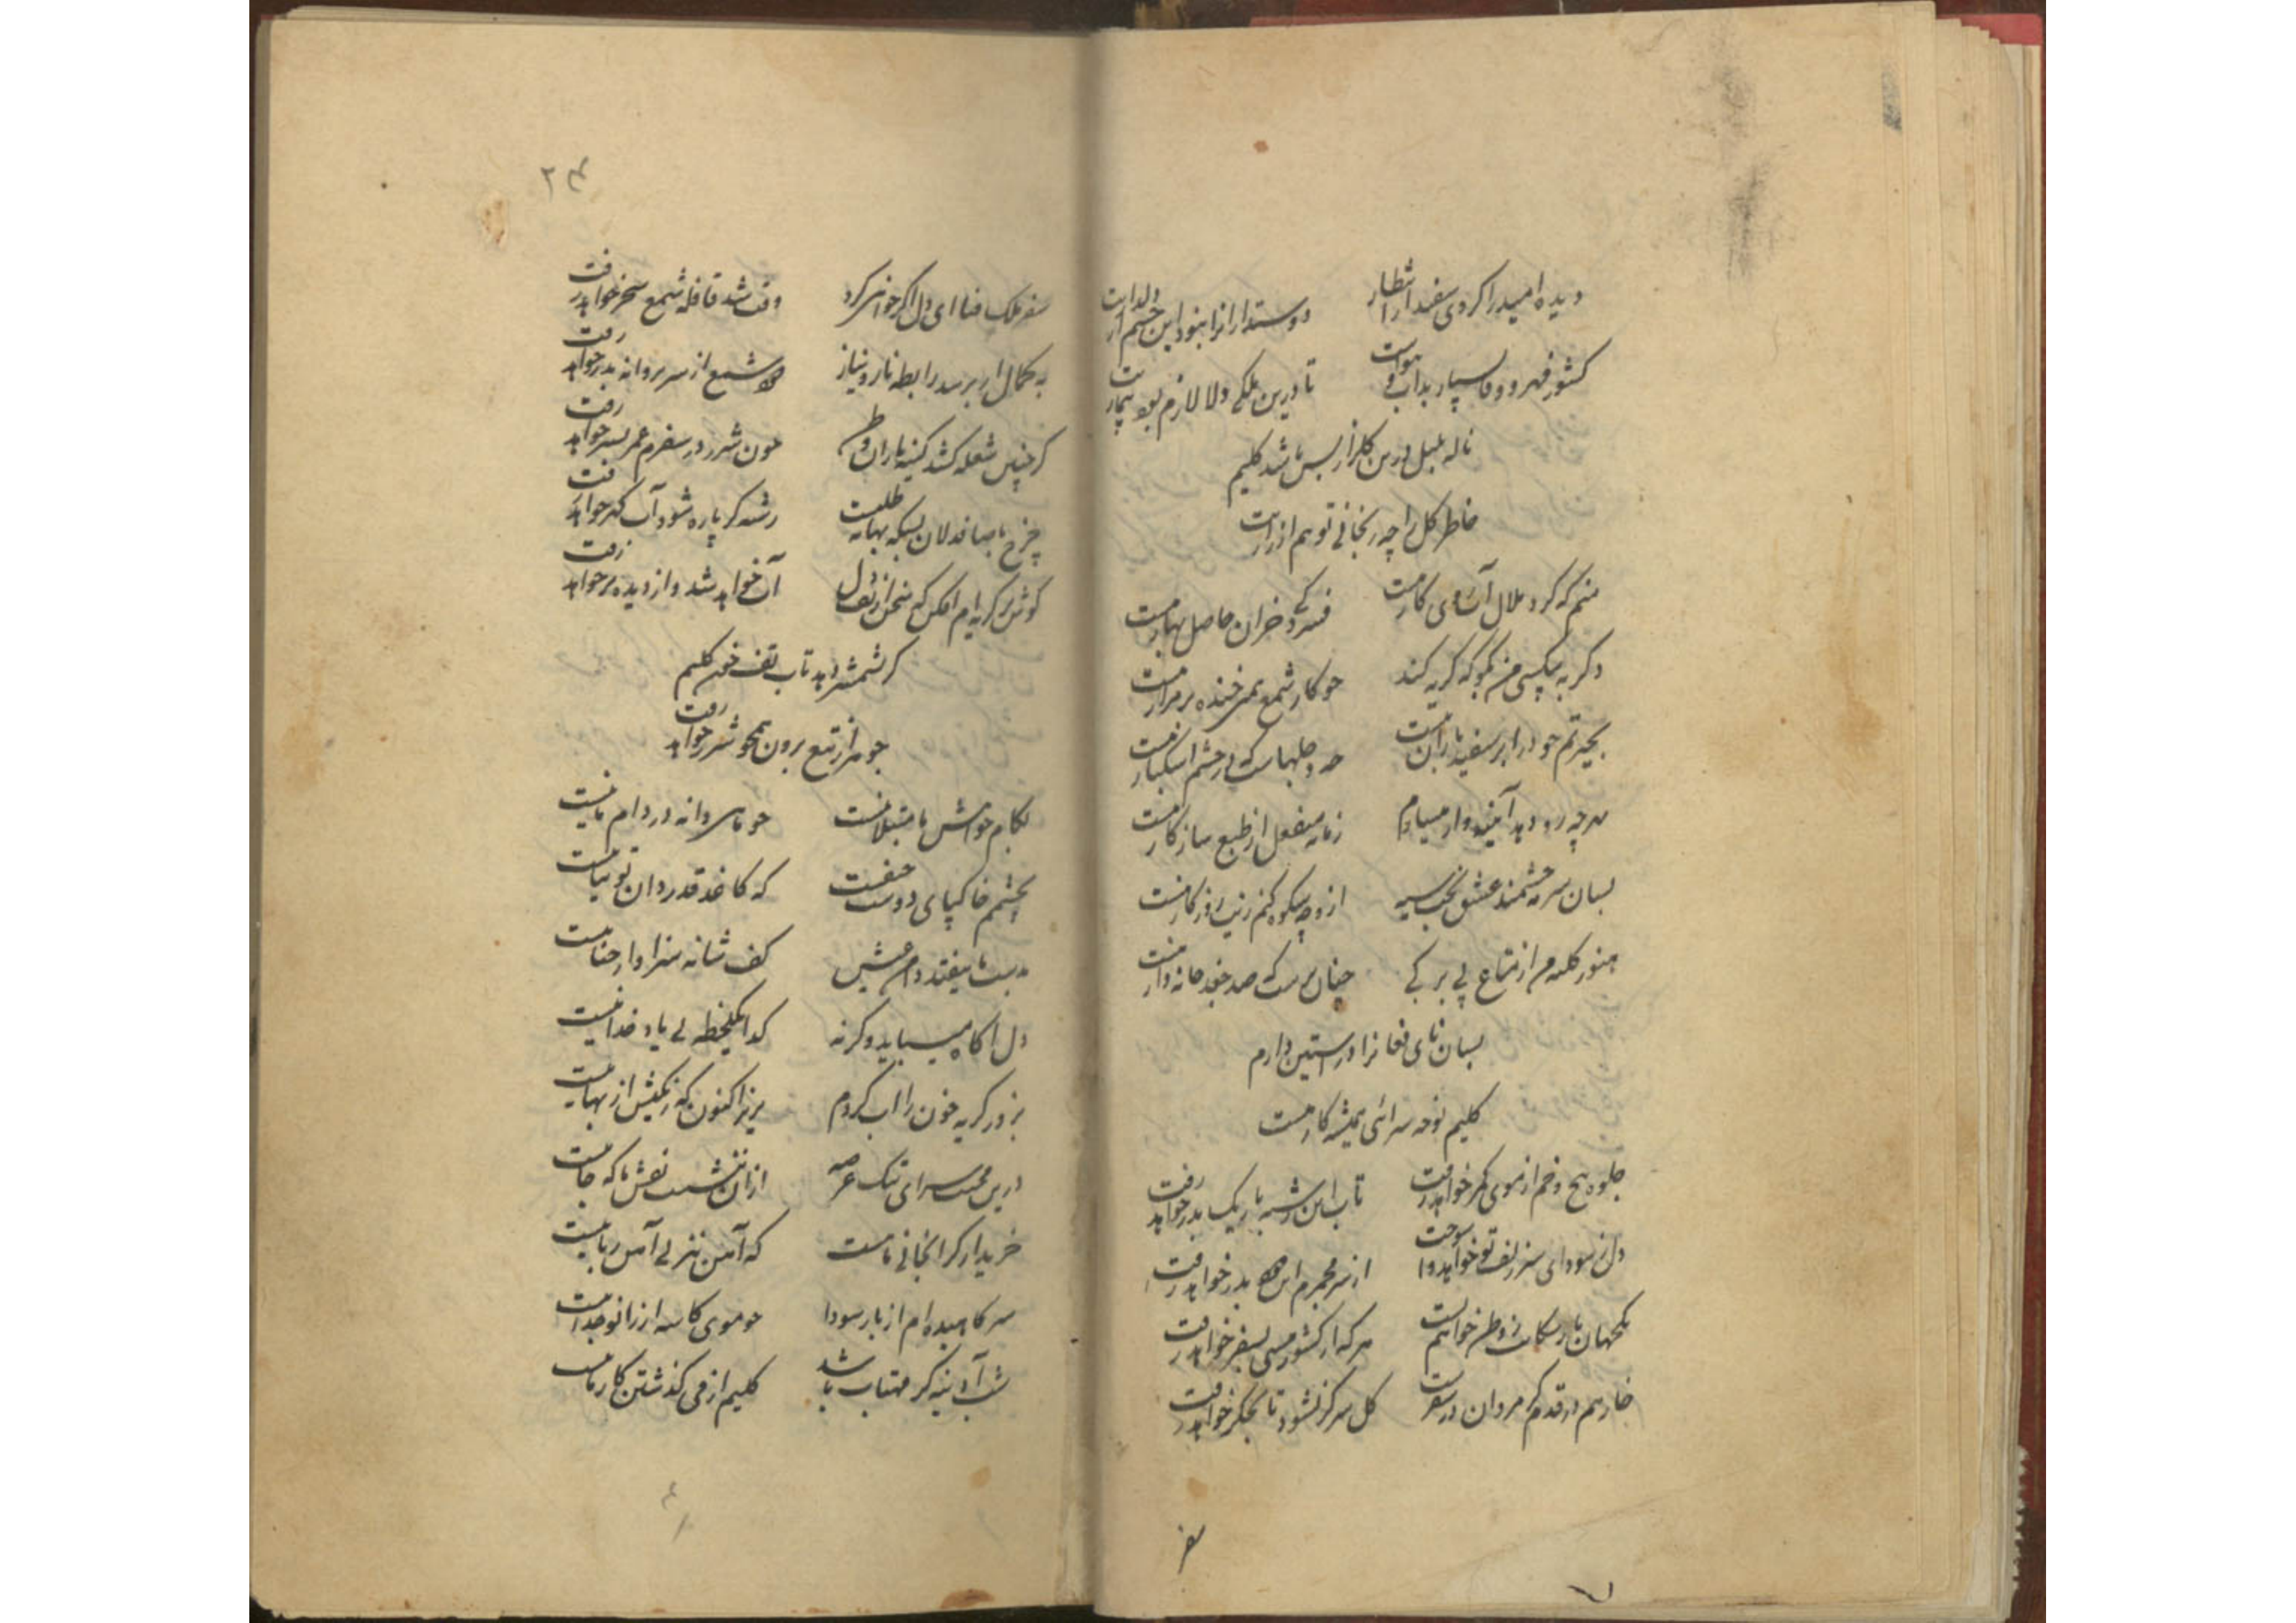 دیده امید را کردی سفید از انتظار
دوستدارانرا نبود این چشم از دلدار است
کشور مهر و وفا بسیار بد آب و هواست
تا درین ملکی دلا لازم بود بیمار است
ناله بلبل درین گلزار بس باشد کلیم
خاطر گل را چه رنجانی تو هم از زار است
منم که گرد ملال آب روی کار منست
فسردگی خزان حاصل بهار منست
دگر به بیکسی من بگو که گریه کند
چو کار شمع همین خنده بر مزار منست
بحیرتم چو در ابر سفید باران نیست
چه دجلهاست که در چشم اشکبار منست
بهر چه رو دهد آیینه وار میسازم
زمانه منفعل از طبع سازگار منست
بسان سرمه چشمند عشق بخت سیه
از و چه شکوه کنم زینت روزگار منست
هنوز کلبه من از متاع بی برگی
چنان پرست که صد جغد خانه دار منست
بسان نای فغانرا در آستین دارم
کلیم نوحه سرائی همیشه کار منست
جلوه پیچ و خم از موی کمر خواهد رفت
تاب این رشته باریک بدر خواهد رفت
دل ز سودای سر زلف تو خواهد وا سوخت
از سر مجمرم این دود بدر خواهد رفت
همرهان بار سبکتر ز وطن خواهم بست
هر که از کشور هستی بسفر خواهد رفت
خار هم در قدم گرم مردان در سفر است
گل سر گر نشود تا بجگر خواهد رفت
سفر
۲۴
سفر ملک فنا ای دل اگر خواهی کرد
وقت شد قافله شمع سحر خواهد رفت
به کمال ار برسد رابطه ناز و نیاز
دود شمع از سر پروانه بدر خواهد رفت
گر چنین شعله کشد کینه یاران وطن
چون شرر در سفرم عمر بسر خواهد رفت
چرخ با صافدلان بسکه بهانه طلبست
رشته گر پاره شود آب گهر خواهد رفت
گوش بر گریه ام افکن که سخن از تف دل
آب خواهد شد و از دیده تر خواهد رفت
گر شمشیر دهد تاب تف خون کلیم
جوهر از تیغ برون همچو شرر خواهد رفت
بکام خواهش ما مبتلا نیست
چو ما پروانه در دام ما نیست
بچشمم خاکپای دوست حیفست
که کاغذ قدردان توتیا نیست
بدست ما نیفتد دامن عیش
کف شانه سزاوار حنا نیست
دل آگاه میباید وگرنه
گدا یکلحظه بی یاد خدا نیست
بزور گریه خون را آب کردم
بریز اکنون که رنگینش از بها نیست
درین محنت سرای تنگ عرصه
از آن ننشست نقش ما که جا نیست
خریدار گرانجانی ما نیست
که آهن نیز بی آهن ربا نیست
سر کاهیده ام از بار سودا
چو موی کاسه از زانو جدا نیست
شب آدینه گر مهتاب باشد
کلیم از می گذشتن کار ما نیست